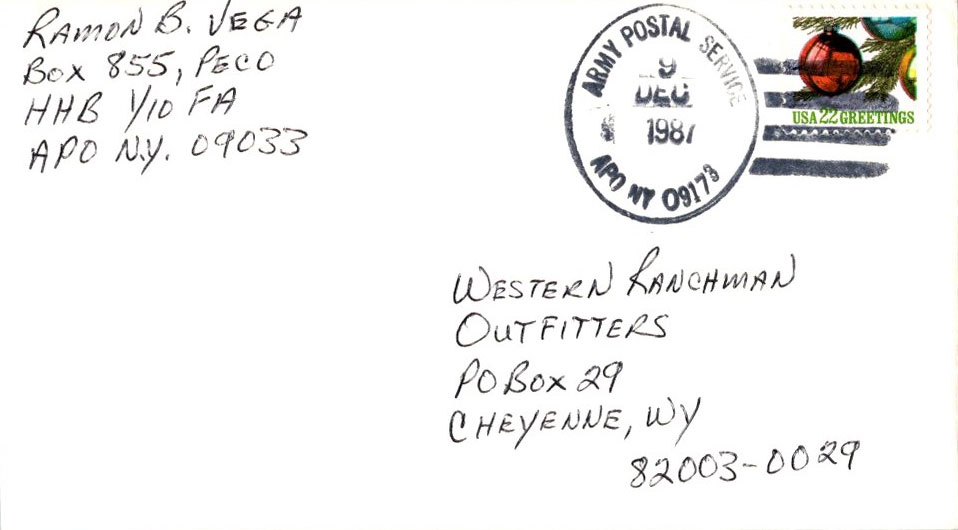 RAMON B. VEGA
BOX 855, PECO
HHB 1/10 FA
APO N.Y. 09033
ARMY POSTAL SERVICE
9
DEC
1987
APO NY 09173
USA 22 GREETINGS
WESTERN RANCHMAN
OUTFITTERS
PO BOX 29
CHEYENNE, WY
82003-0029